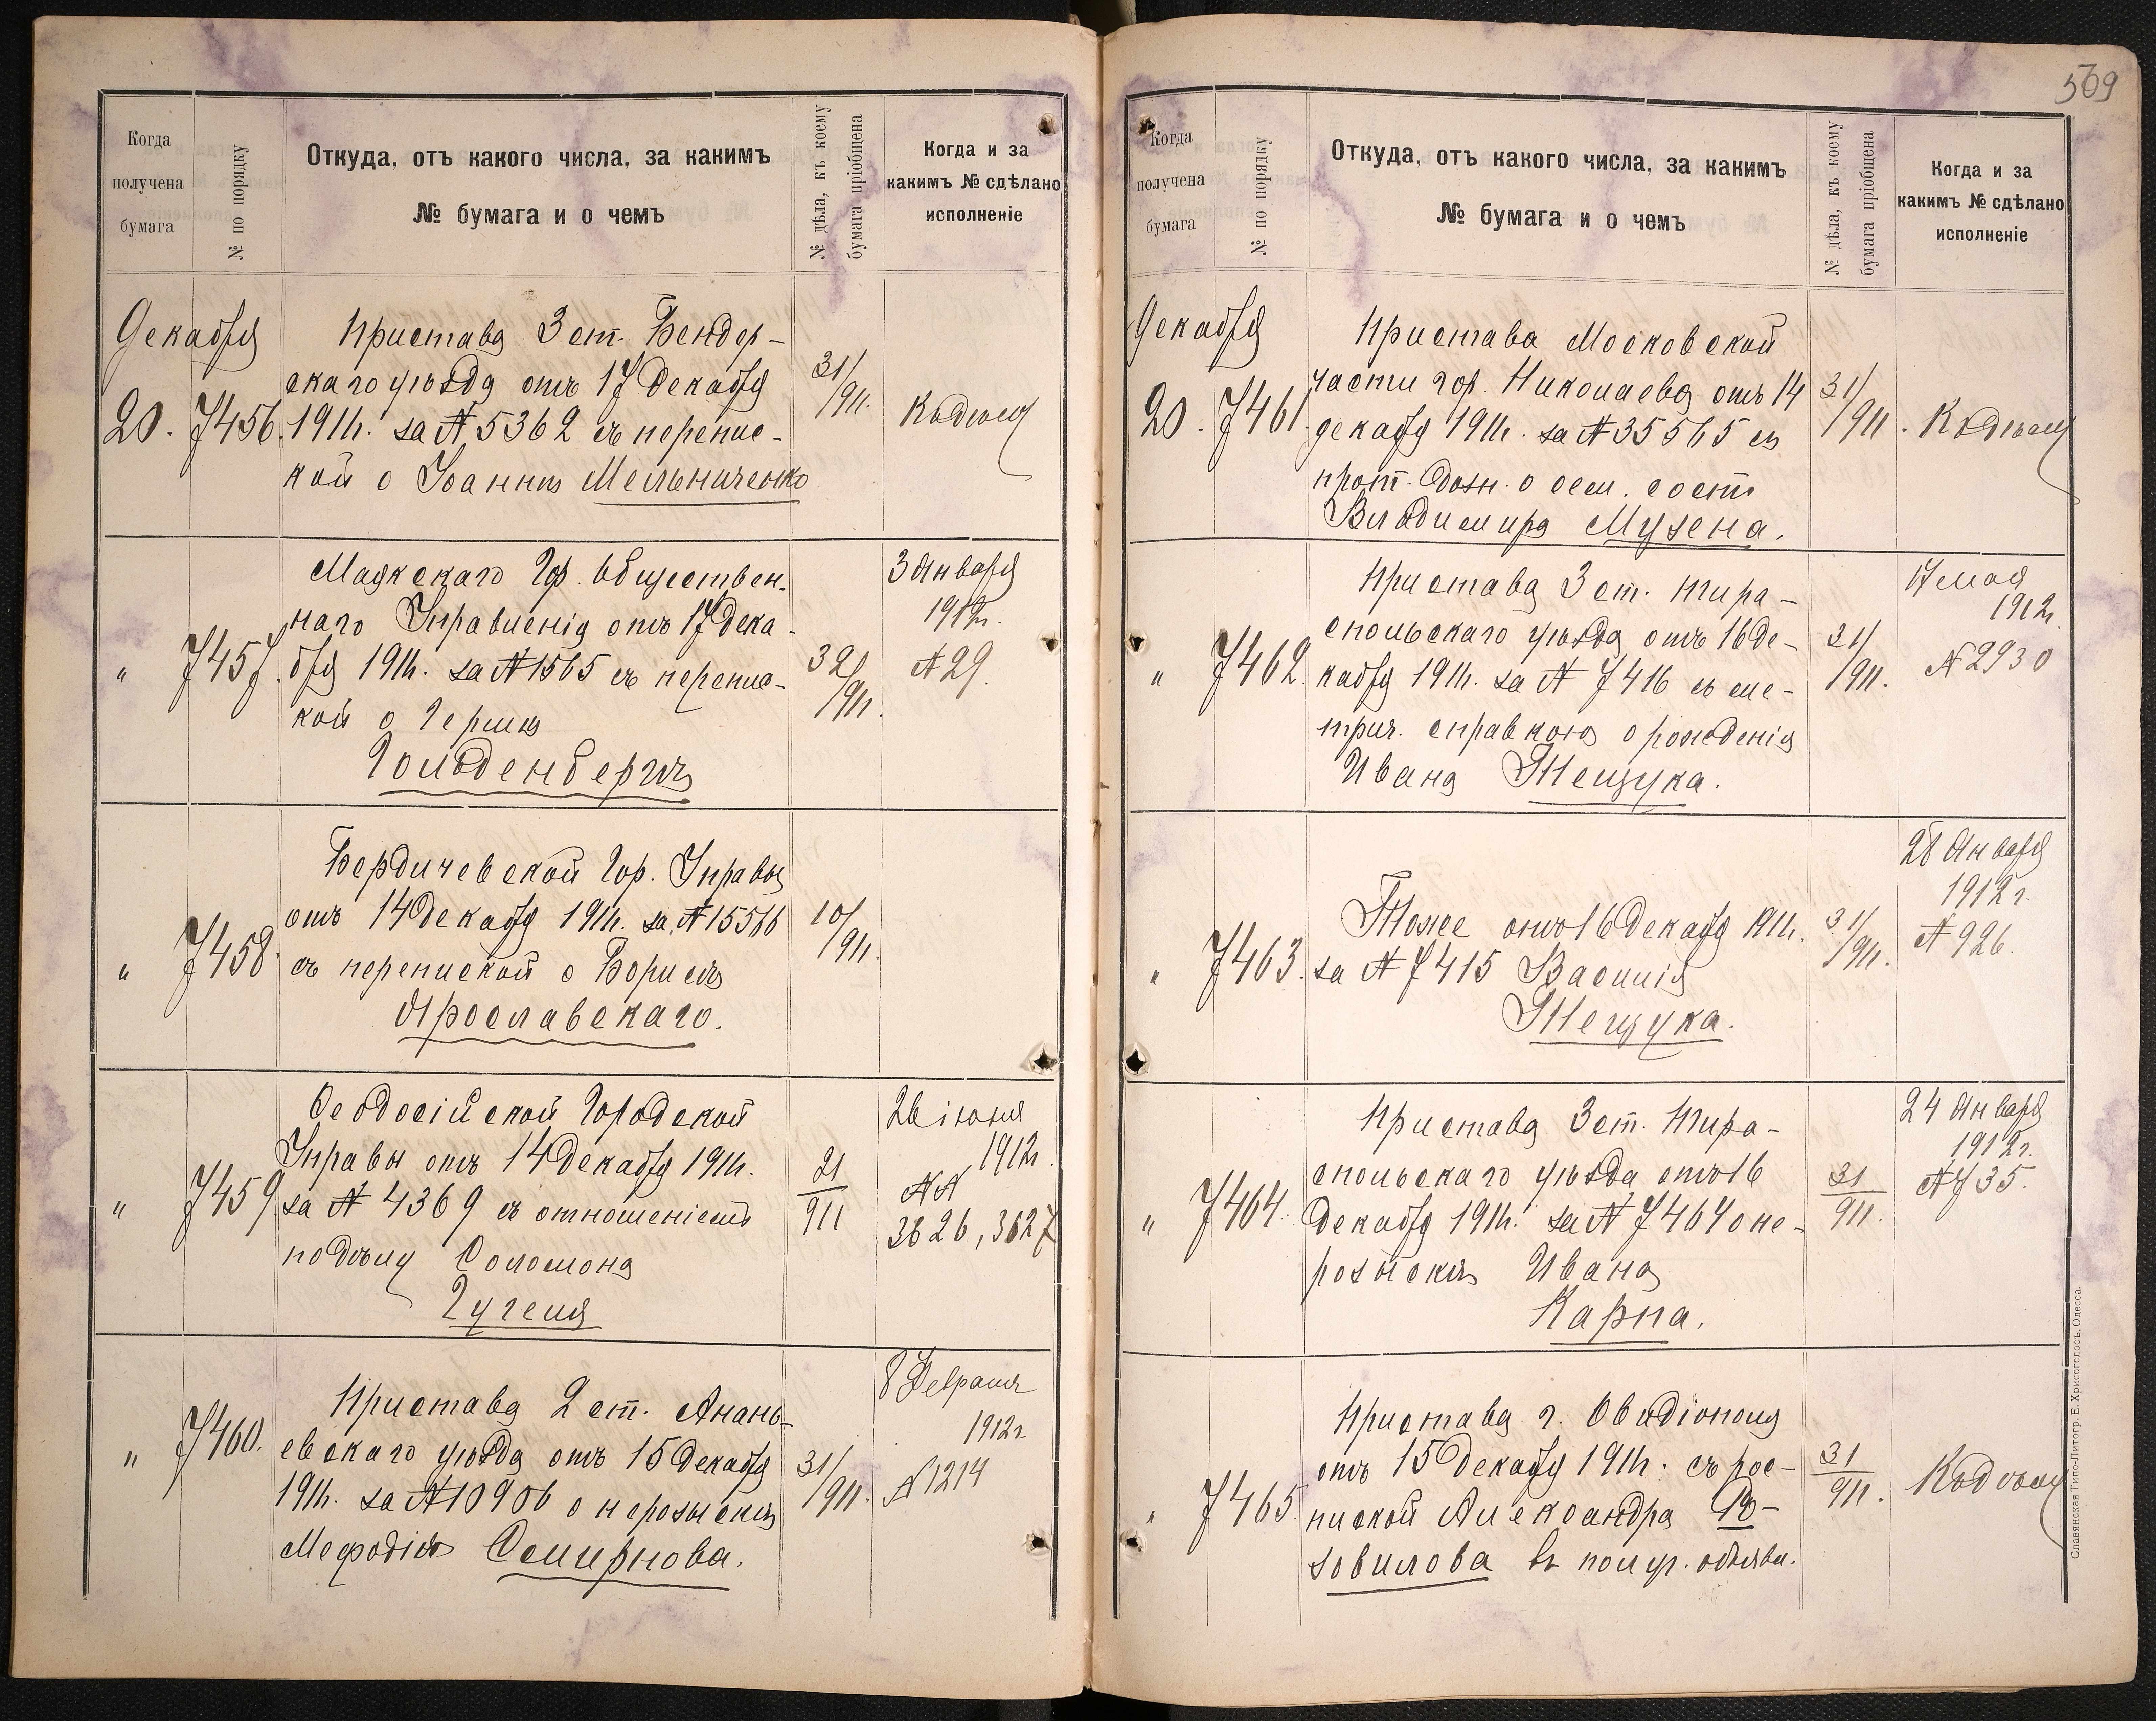 Когда
получена
бумага
№ по порядку
Откуда, отъ какого числа, за какимъ
№ бумага и о чемъ
№ дѣла, къ коему
бумага пріобщена
Когда и за
какимъ № сдѣлано
исполненіе
Декабря
20.
7456.
Пристава 3 ст. Бендер-
скаго уѣзда отъ 17 Декабря
1911г. за № 5362 съ перепис-
кой о Іоаннѣ Мельниченко
31/911.
Къ дѣлу
"
7457.
Маякскаго Гор. Обществен.
наго Управленія отъ 17 Дека-
бря 1911г. за № 1565 съ перепис-
кой о Гершѣ
Гольденбергѣ
32/911.
3 Января
1912г.
№ 29.
"
7458.
Бердичевской Гор. Управы
отъ 14 Декабря 1911г. за № 15566
съ перепиской о Борисѣ
Ярославскаго.
10/911.
"
7459.
Ѳеодосійской Городской
Управы отъ 14 Декабря 1911г.
за № 4369 съ отношеніемъ
по дѣлу Соломона
Гугеля
21
911
26 іюня
1912г.
№№
3626, 3627
"
7460.
Пристава 2 ст. Анань-
евскаго уѣзда отъ 15 Декабря
1911г. за № 10906 о нерозыскѣ
Мефодія Смирнова.
31/911.
8 Февраля
1912г
№ 1214
509
Когда
получена
бумага
№ по порядку
Откуда, отъ какого числа, за какимъ
№ бумага и о чемъ
№ дѣла, къ коему
бумага пріобщена
Когда и за
какимъ № сдѣлано
исполненіе
Декабря
20.
7461.
Пристава Московской
части гор. Николаева отъ 14
декабря 1911г. за № 35565 съ
прот. дозн. о сем. сост.
Владимира Музена.
31/911.
Къ дѣлу
"
7462.
Пристава 3 ст. Тира-
спольскаго уѣзда отъ 16 Де-
кабря 1911г. за № 7416 съ ме-
трич. справкою о рожденіи
Ивана Тещука.
31/911.
17 мая
1912г.
№ 2930
"
7463.
Тоже отъ 16 Декабря 1911г.
за № 7415 Василія
Тещука.
31/911.
28 Января
1912 г.
№ 926.
"
7464.
Пристава 3 ст. Тира-
спольскаго уѣзда отъ 16
Декабря 1911г. за № 7464 о не-
розыскѣ Ивана
Карпа.
31
911.
24 Января
1912г.
№ 735.
"
7465.
Пристава г. Овидіополя
отъ 15 Декабря 1911г. съ рос-
пиской Александра Ро-
зовилова въ получ. объявл.
31
911.
Къ дѣлу
Славянская Типо-Литогр. Е. Хрисогелосъ, Одесса.